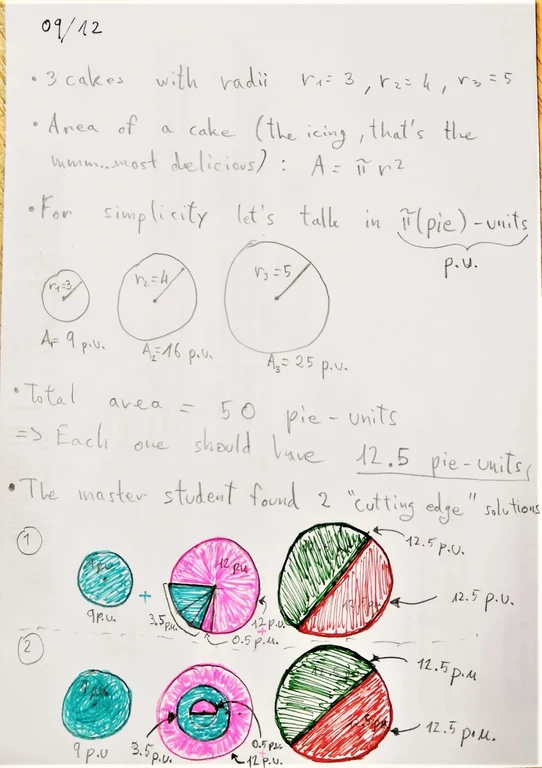 09/12
• 3 cakes with radii r1=3, r2=4, r3=5
• Area of a cake (the icing, that's the
mmm..most delicious): A = π r²
• For simplicity let's talk in π(pie)-units
p.u.
r1=3
r2=4
r3=5
A1=9 p.u.
A2=16 p.u.
A3=25 p.u.
• Total area = 50 pie-units
=> Each one should have 12.5 pie-units,
• The master student found 2 "cutting edge" solutions
1
12 p.u.
12.5 p.u.
9p.u.
+
3.5p.u.
0.5 p.u.
12 p.u.
+
12.5 p.u.
2
12.5 p.u
9 p.u
3.5p.u.
0.5p.u.
+
12 p.u.
12.5 p.u.